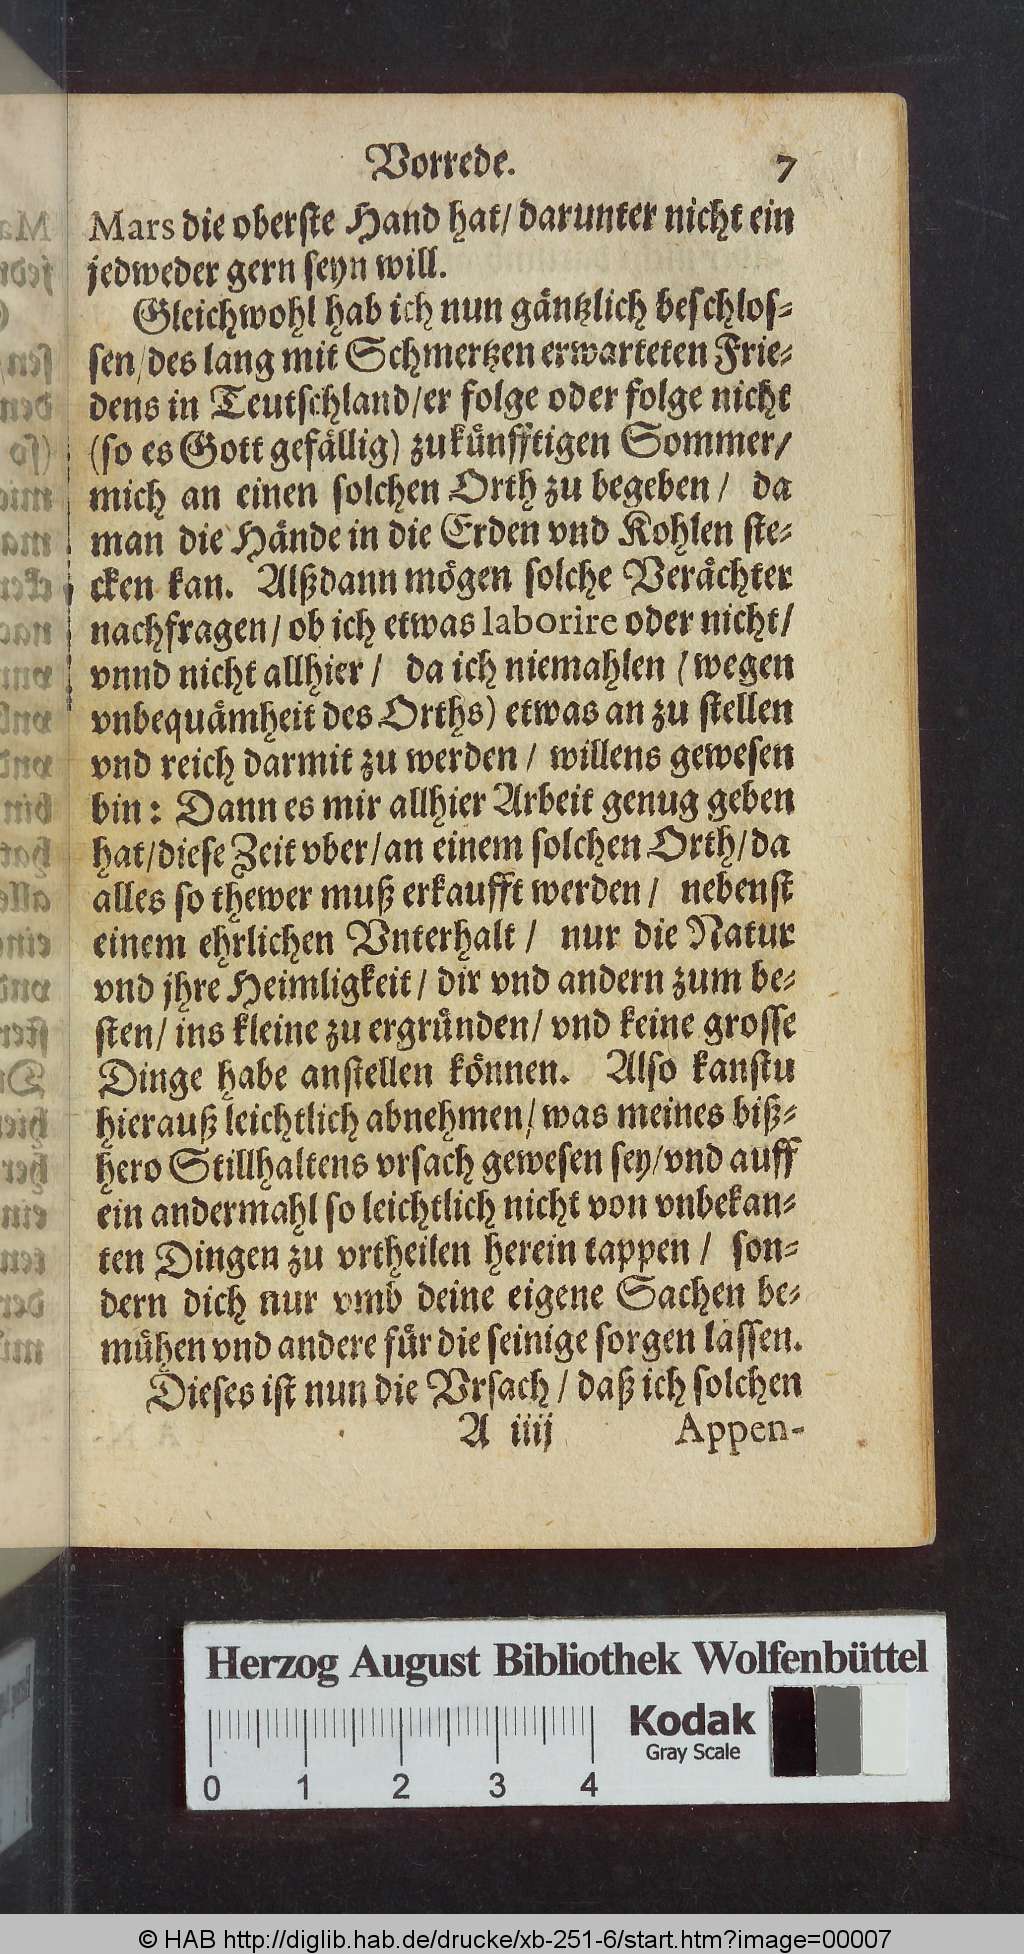 Vorrede. 7
Mars die oberste Hand hat/ darunter nicht ein
jedweder gern seyn will.
Gleichwohl hab ich nun gäntzlich beschlos-
sen/ des lang mit Schmertzen erwarteten Frie-
dens in Teutschland/ er folge oder folge nicht
(so es Gott gefällig) zukünfftigen Sommer/
mich an einen solchen Orth zu begeben/ da
man die Hände in die Erden vnd Kohlen ste-
cken kan. Alßdann mögen solche Verächter
nachfragen/ ob ich etwas laborire oder nicht/
vnnd nicht allhier/ da ich niemahlen (wegen
vnbequämheit des Orths) etwas an zu stellen
vnd reich darmit zu werden/ willens gewesen
bin: Dann es mir allhier Arbeit genug geben
hat/ diese Zeit vber/ an einem solchen Orth/ da
alles so thewer muß erkaufft werden/ nebenst
einem ehrlichen Vnterhalt/ nur die Natur
vnd jhre Heimligkeit/ dir vnd andern zum be-
sten/ ins kleine zu ergründen/ vnd keine grosse
Dinge habe anstellen können. Also kanstu
hierauß leichtlich abnehmen/ was meines biß-
hero Stillhaltens vrsach gewesen sey/ vnd auff
ein andermahl so leichtlich nicht von vnbekan-
ten Dingen zu vrtheilen herein tappen/ son-
dern dich nur vmb deine eigene Sachen be-
mühen vnd andere für die seinige sorgen lassen.
Dieses ist nun die Vrsach/ daß ich solchen
A iiij Appen-
Herzog August Bibliothek Wolfenbüttel
Kodak
Gray Scale
0 1 2 3 4
© HAB http://diglib.hab.de/drucke/xb-251-6/start.htm?image=00007